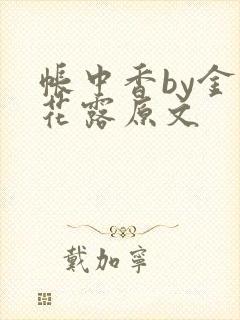 帐中香by金
花露原文
戴加宁